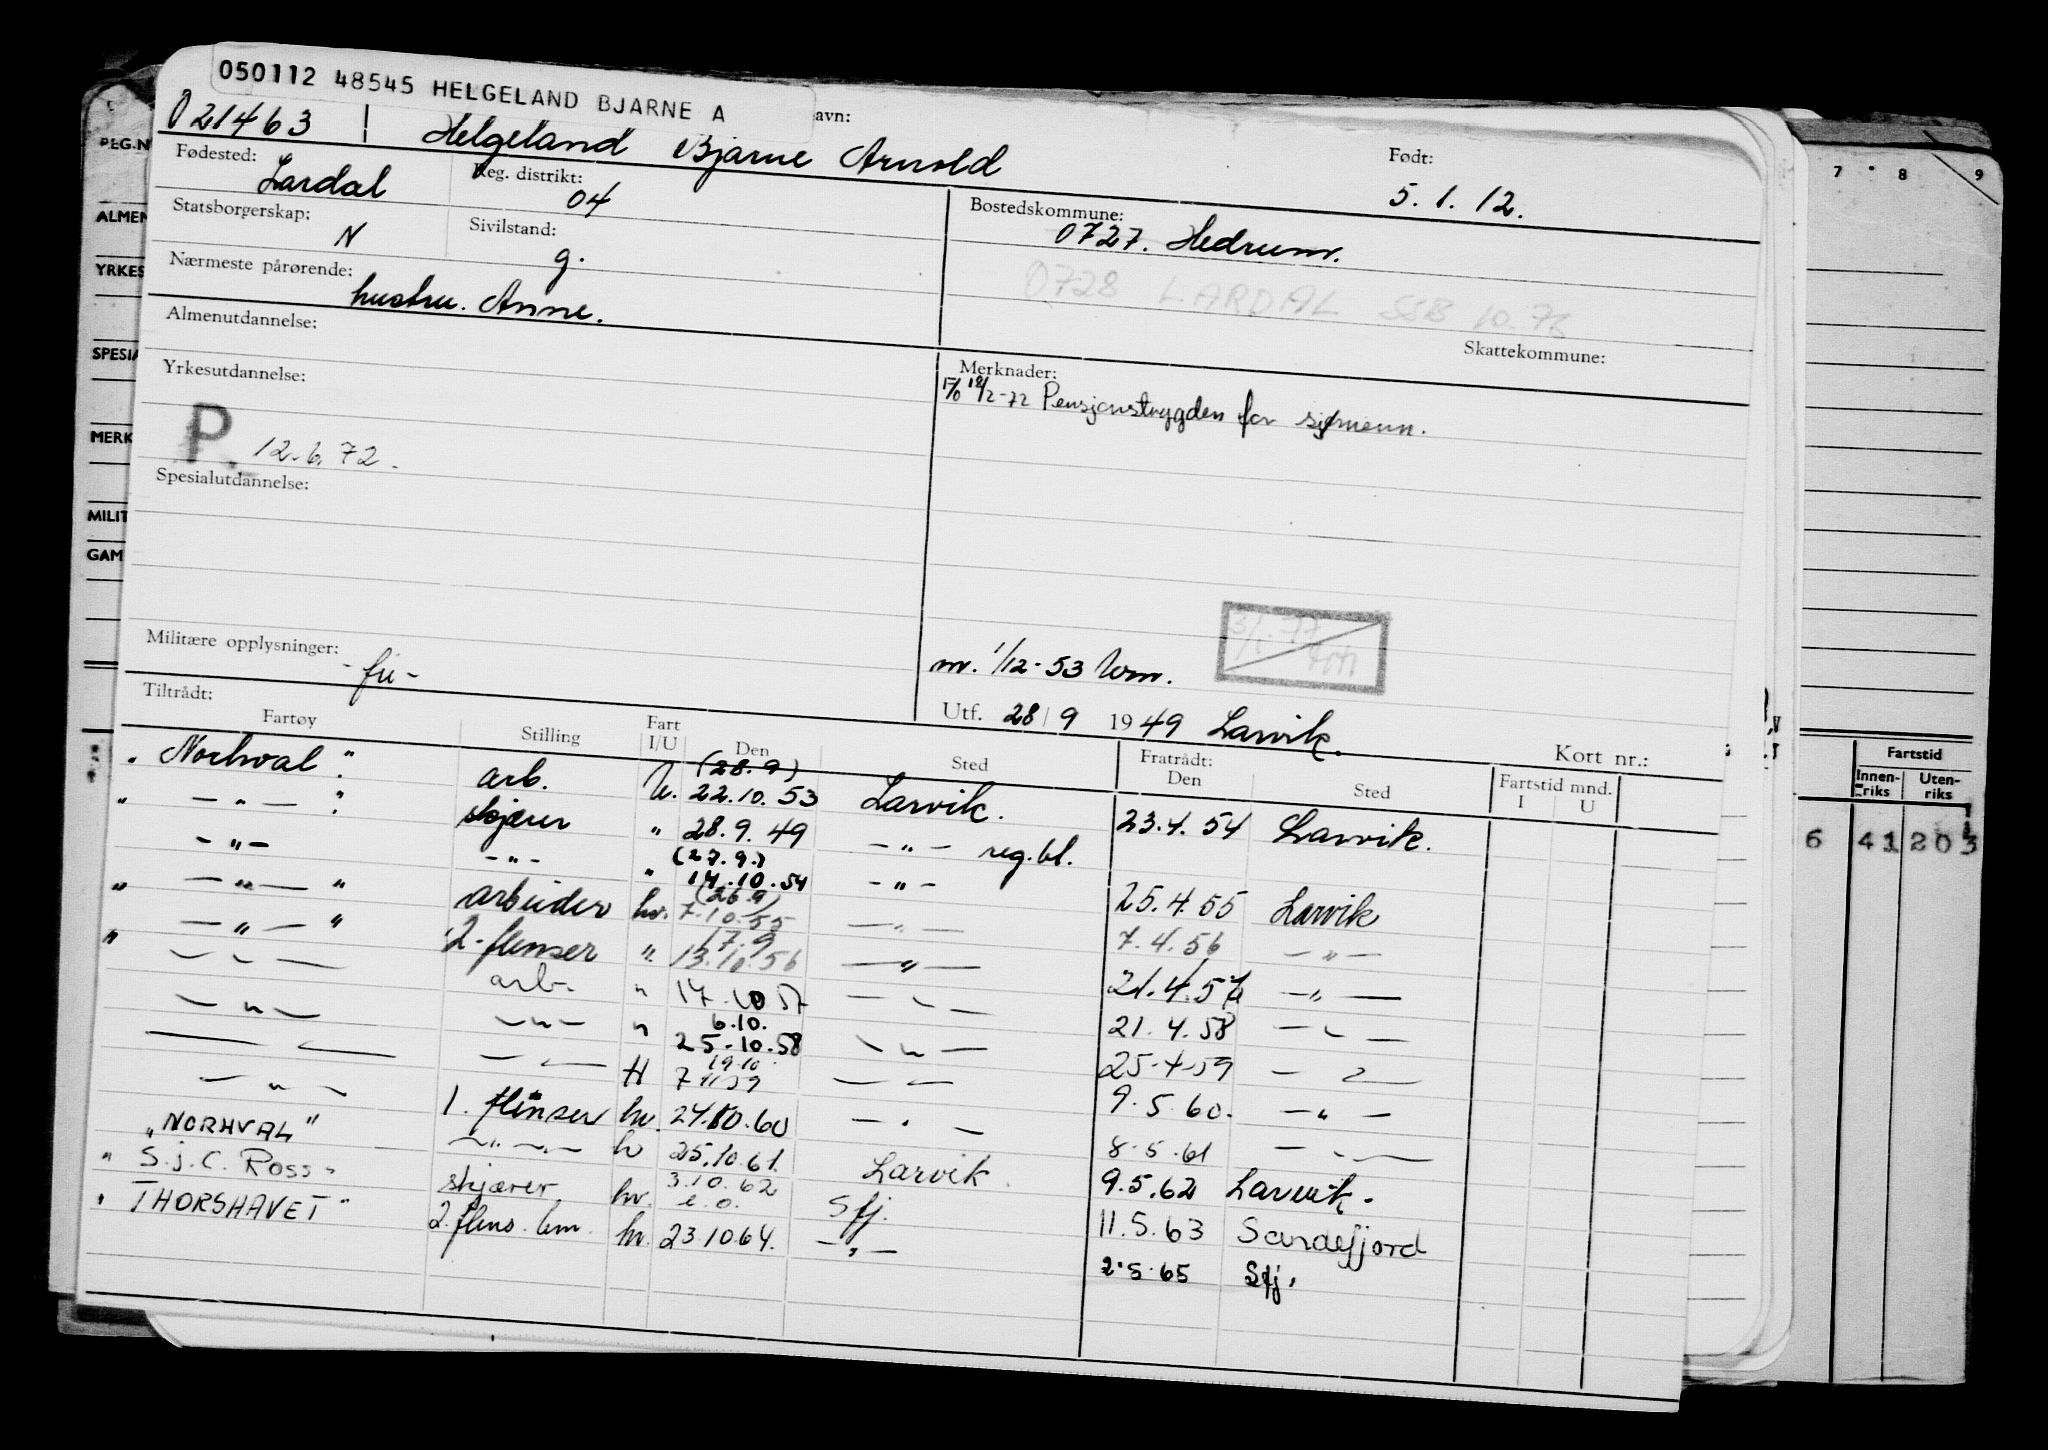 050112 48545 HELGELAND BJARNE A
021463 Helgeland Bjarne Arnold
avn:
Født:
5.1.12.
Fødested:
Lardal
Reg. distrikt:
04
Bostedskommune:
0727. Hedrum.
Statsborgerskap:
N
Sivilstand:
g.
0728 LARDAL SSB 10.76
Nærmeste pårørende:
hustru. Anne.
Skattekommune:
Almenutdannelse:
Merknader:
12/2-72 Pensjonstrygden for sjømenn.
Yrkesutdannelse:
P. 12.6.72.
Spesialutdannelse:
Militære opplysninger:
-fu-
m. 1/12-53 Wm.
Utf. 28/9 1949 Larvik.
Kort nr.:
Tiltrådt:
Fartøy Stilling Fart I/U Den Sted Fratrådt: Den Sted Fartstid mnd. I U
„Norhval" arb. U. (28.9) 22.10.53 Larvik. 23.4.54 Larvik.
„ — " — " skjærer " 28.9.49 — " — reg.bl.
- " - - " - " (27.9.) 14.10.54 - " - 25.4.55 Larvik
„ — " — " arbeider hv. (26.9) 7.10.55 — " — 7.4.56 — " —
„ — " — " 2. flenser " 17.9 13.10.56 — " — 21.4.57 — " —
— " — arb. " 17.10 57 — " — 21.4.58 — " —
— " — — " — " 6.10. 25.10.58 — " — 25.4.59 — " —
— " — — " — H 19.10 7 11 59 — " — 9.5.60. — " —
— " — 1. flenser hv. 24.10.60 — " — 8.5.61 — " —
„NORHVAL" — " — hv 25.10.61. Larvik 9.5.62 Larvik.
„ S.j.C. Ross " skjærer hv. 3.10.62 e.o. Sfj. 11.5.63 Sandefjord
„ THORSHAVET " 2. flens. lem. hv. 23.10.64. — " — 2.5.65 Sfj.
REG.N
ALMEN
YRKES
SPESIA
MERK
MILIT
GAM
7 8 9
Fartstid
Innen-riks Uten-riks
6 41 203